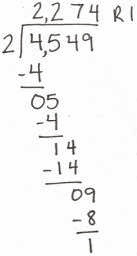 2,274 R1
2 4,549
-4
05
-4
14
-14
09
-8
1